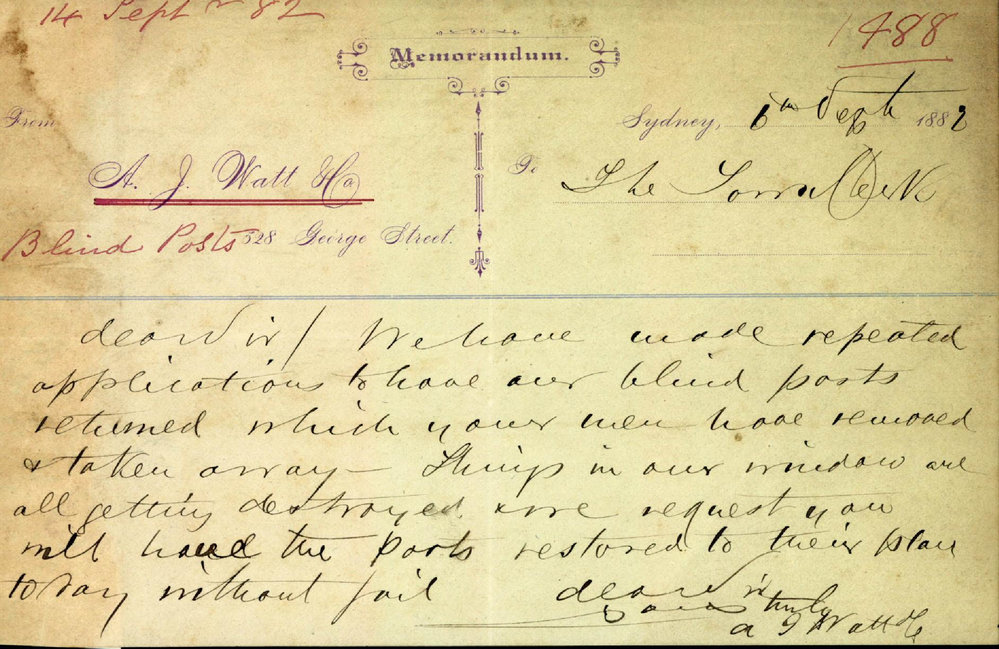 14 Sept 82
1488
Memorandum.
Sydney, 6th Sept 1882
From
To
A. J. Watt & Co
The Town Clerk
Blind Posts
528 George Street.
dear Sir / We have made repeated
applications to have our blind posts
returned which your men have removed
& taken away – Things in our window are
all getting destroyed & we request you
will have the posts restored to their place
to day without fail
dear Sir
Yours truly
A J Watt & Co